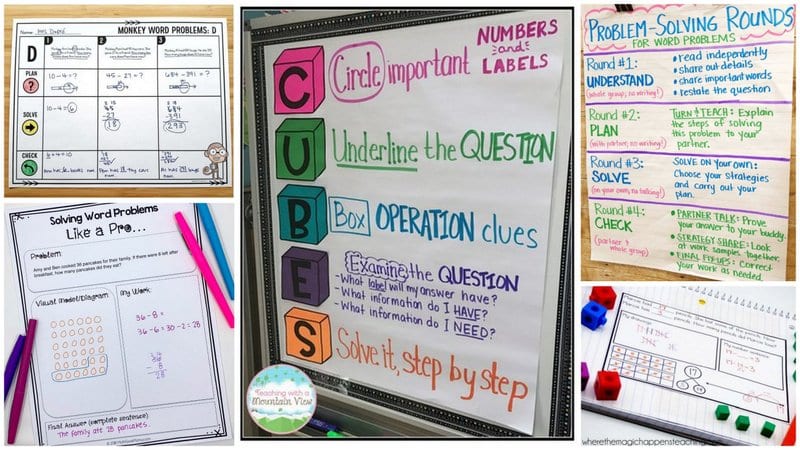 MONKEY WORD PROBLEMS: D
D
1
2
3
PLAN
?
10-4=?
45-27=?
684-391=?
SOLVE
10-4=6
18
293
CHECK
Solving Word Problems
Like a Pro...
Problem
Amy and Ben cooked 36 pancakes for their family. If there were 8 left after
breakfast, how many pancakes did they eat?
Visual Model/Diagram
My Work
36-8=
36-6=30-2=28
36
-8
28
Final Answer (complete sentence)
The family ate 28 pancakes.
C
Circle important NUMBERS
and
LABELS
U
Underline the QUESTION
B
Box OPERATION clues
E
Examine the QUESTION
- What label will my answer have?
- What information do I HAVE?
- What information do I NEED?
S
Solve it, step by step
Teaching with a
Mountain View
PROBLEM-SOLVING ROUNDS
FOR WORD PROBLEMS
Round #1:
UNDERSTAND
(whole group; no writing!)
• read independently
• share out details
• share important words
• restate the question
Round #2:
PLAN
(with partner; no writing!)
TURN & TEACH: Explain
the steps of solving
this problem to your
partner.
Round #3:
SOLVE
(on your own; no talking!)
SOLVE ON YOUR OWN:
Choose your strategies
and carry out your
plan.
Round #4:
CHECK
(partner &
whole group)
• PARTNER TALK: Prove
your answer to your buddy.
• STRATEGY SHARE: Look
at work samples together.
• FINAL FIX-UPS: Correct
your work as needed.
My drawing
My number sentence
17
wherethemagichappensteaching